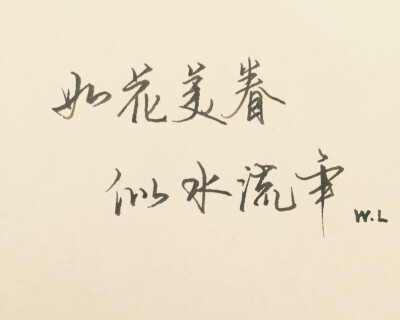 如花美眷
似水流年
W.L